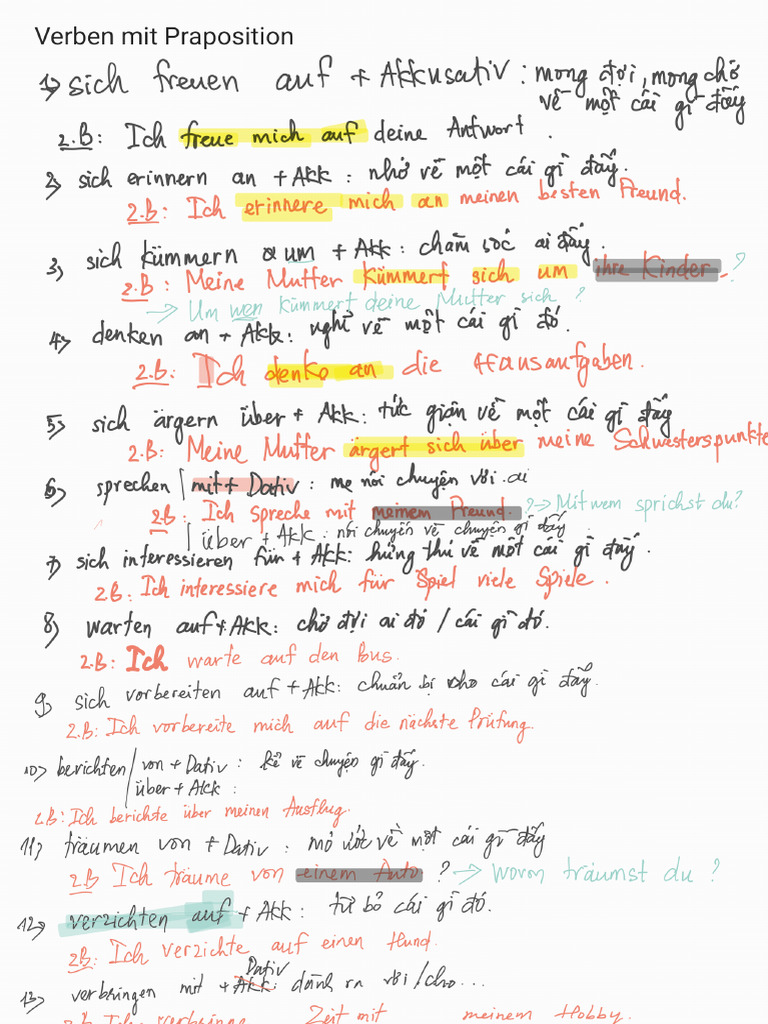 Verben mit Praposition
1) sich freuen auf + Akkusativ : mong đợi, mong chờ
về một cái gì đấy
z.B: Ich freue mich auf deine Antwort .
2) sich erinnern an + Akk : nhớ về một cái gì đấy.
z.B: Ich erinnere mich an meinen besten Freund.
3) sich kümmern um + Akk : chăm sóc ai đấy .
z.B : Meine Mutter kümmert sich um ihre Kinder . ?
→ Um wen kümmert deine Mutter sich ?
4) denken an + Akk : nghĩ về một cái gì đó.
z.B: Ich denke an die Hausaufgaben.
5) sich ärgern über + Akk : tức giận về một cái gì đấy
z.B: Meine Mutter ärgert sich über meine Schwesterspunkte
6) sprechen / mit + Dativ : nói chuyện với ai
z.B : Ich spreche mit meinem Freund. ? → Mit wem sprichst du?
/ über + Akk : nói chuyện về chuyện gì đấy
7) sich interessieren für + Akk : hứng thú về một cái gì đấy .
z.B: Ich interessiere mich für viele Spiele .
8) warten auf + Akk : chờ đợi ai đó / cái gì đó.
z.B: Ich warte auf den Bus.
9) sich vorbereiten auf + Akk: chuẩn bị cho cái gì đấy.
z.B: Ich vorbereite mich auf die nächste Prüfung.
10) berichten / von + Dativ : kể về chuyện gì đấy.
über + Akk :
z.B: Ich berichte über meinen Ausflug.
11) träumen von + Dativ : mơ ước về một cái gì đấy
z.B Ich träume von einem Auto ? → Wovon träumst du ?
12) verzichten auf + Akk : từ bỏ cái gì đó.
z.B: Ich verzichte auf einen Hund.
Dativ
13) verbringen mit + Akk : dành ra với / cho ...
z.B: Ich verbringe Zeit mit meinem Hobby.